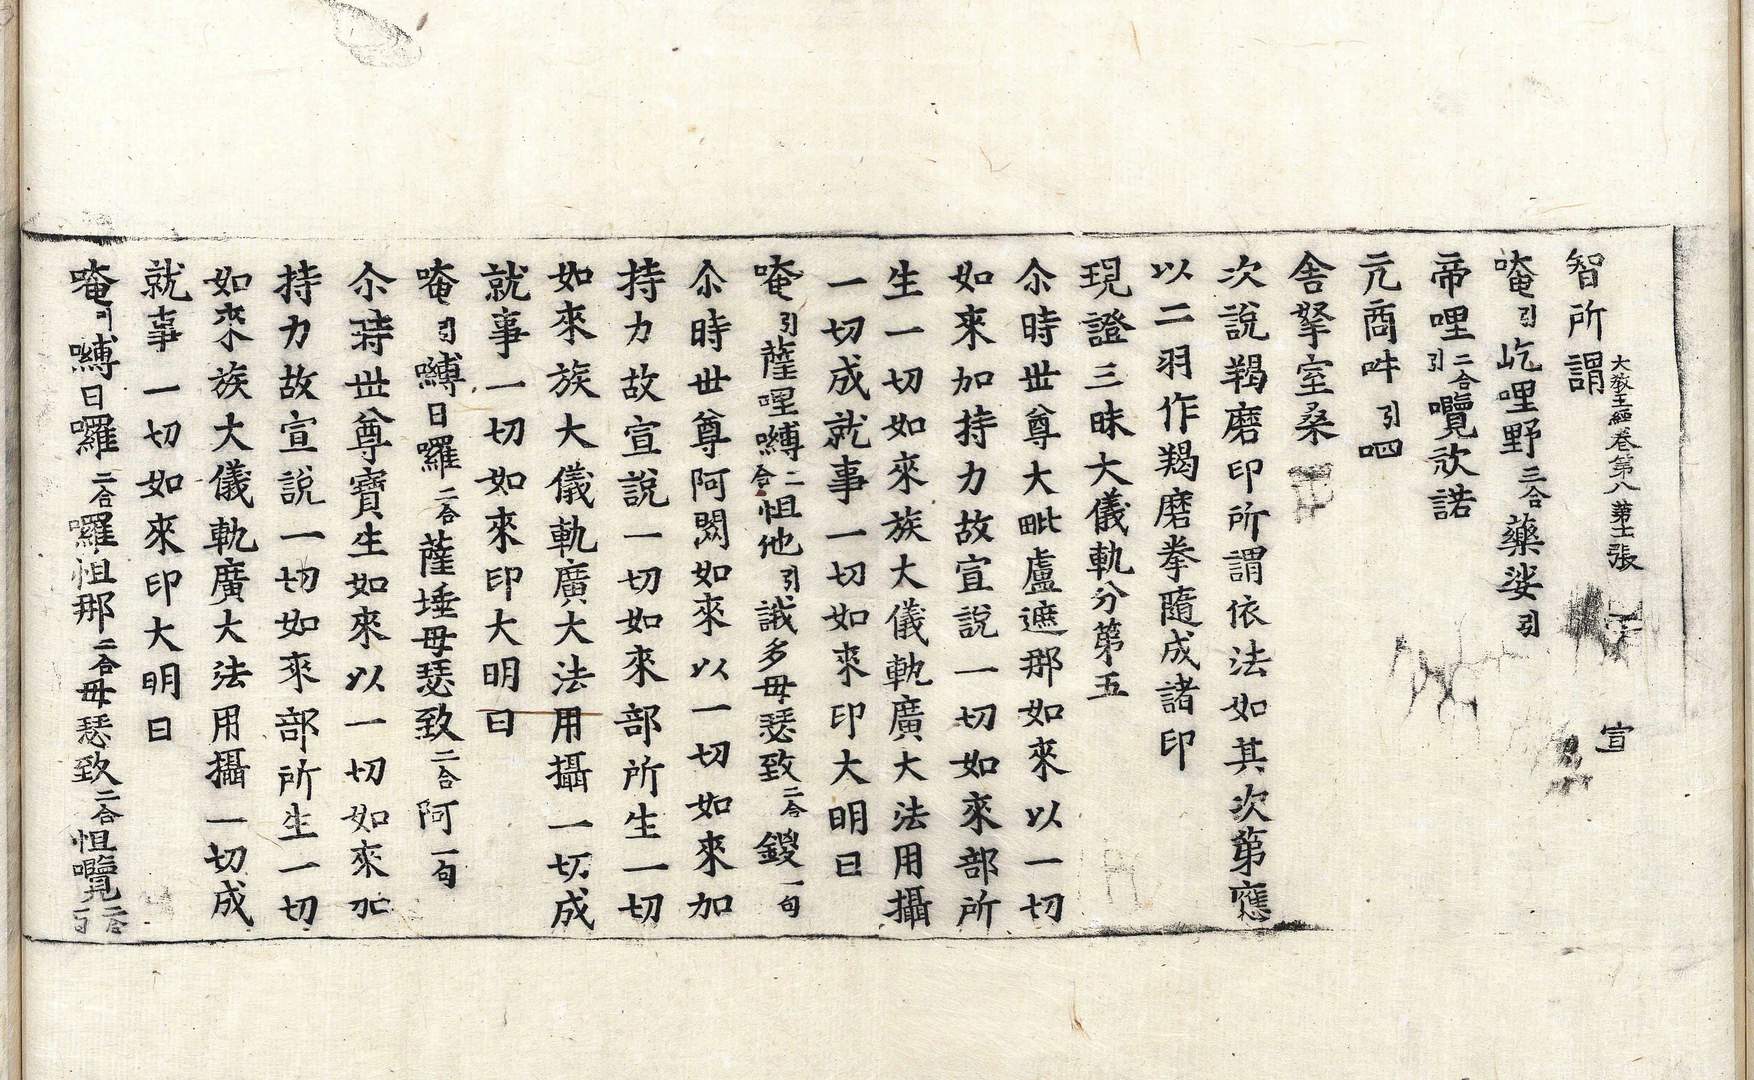 大敎王經卷第八 第十二張 宣
智所謂
唵引屹哩野三合藥娑引
帝哩二合引囕欬諾
亢商吽引呬
舍拏室桑
次說羯磨印所謂依法如其次第應
以二羽作羯磨拳隨成諸印
現證三昧大儀軌分第五
尒時世尊大毗盧遮那如來以一切
如來加持力故宣說一切如來部所
生一切如來族大儀軌廣大法用攝
一切成就事一切如來印大明曰
唵引薩哩嚩二合怛他引誐多母瑟致二合鍐一句
尒時世尊阿閦如來以一切如來加
持力故宣說一切如來部所生一切
如來族大儀軌廣大法用攝一切成
就事一切如來印大明曰
唵引嚩日囉二合薩埵母瑟致二合阿一句
尒時世尊寶生如來以一切如來加
持力故宣說一切如來部所生一切
如來族大儀軌廣大法用攝一切成
就事一切如來印大明曰
唵引嚩日囉二合囉怛那二合母瑟致二合怛囕二合一句